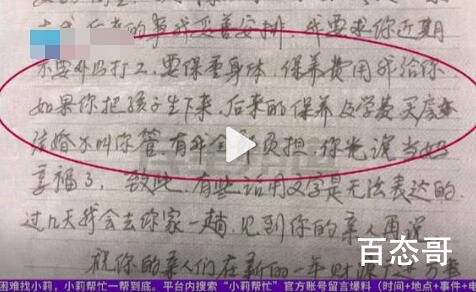 后来的事我妥善安排，我要求你近期
不要外出打工，要保重身体，保养费用我给你
如果你把孩子生下来，后来的保养及学费买房
结婚不叫你管，有我全部负担，你光说当妈
享福了，致此，有些话用文字是无法表达的，
过几天我会去你家一趟，见到你的亲人再说
祝你的亲人们在新的一年财源
百态哥
困难找小莉，小莉帮忙一帮到底。平台内搜索“小莉帮忙”官方账号留言爆料（时间+地点+事件+